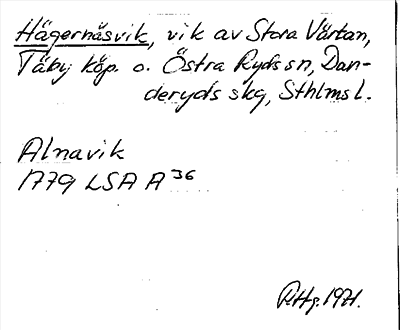 Hägernäsvik, vik av Stora Värtan,
Täby köp. o. Östra Ryds sn, Dan-
deryds skg, Sthlms l.
Alnavik
1779 LSA A 36
RHg. 1971.